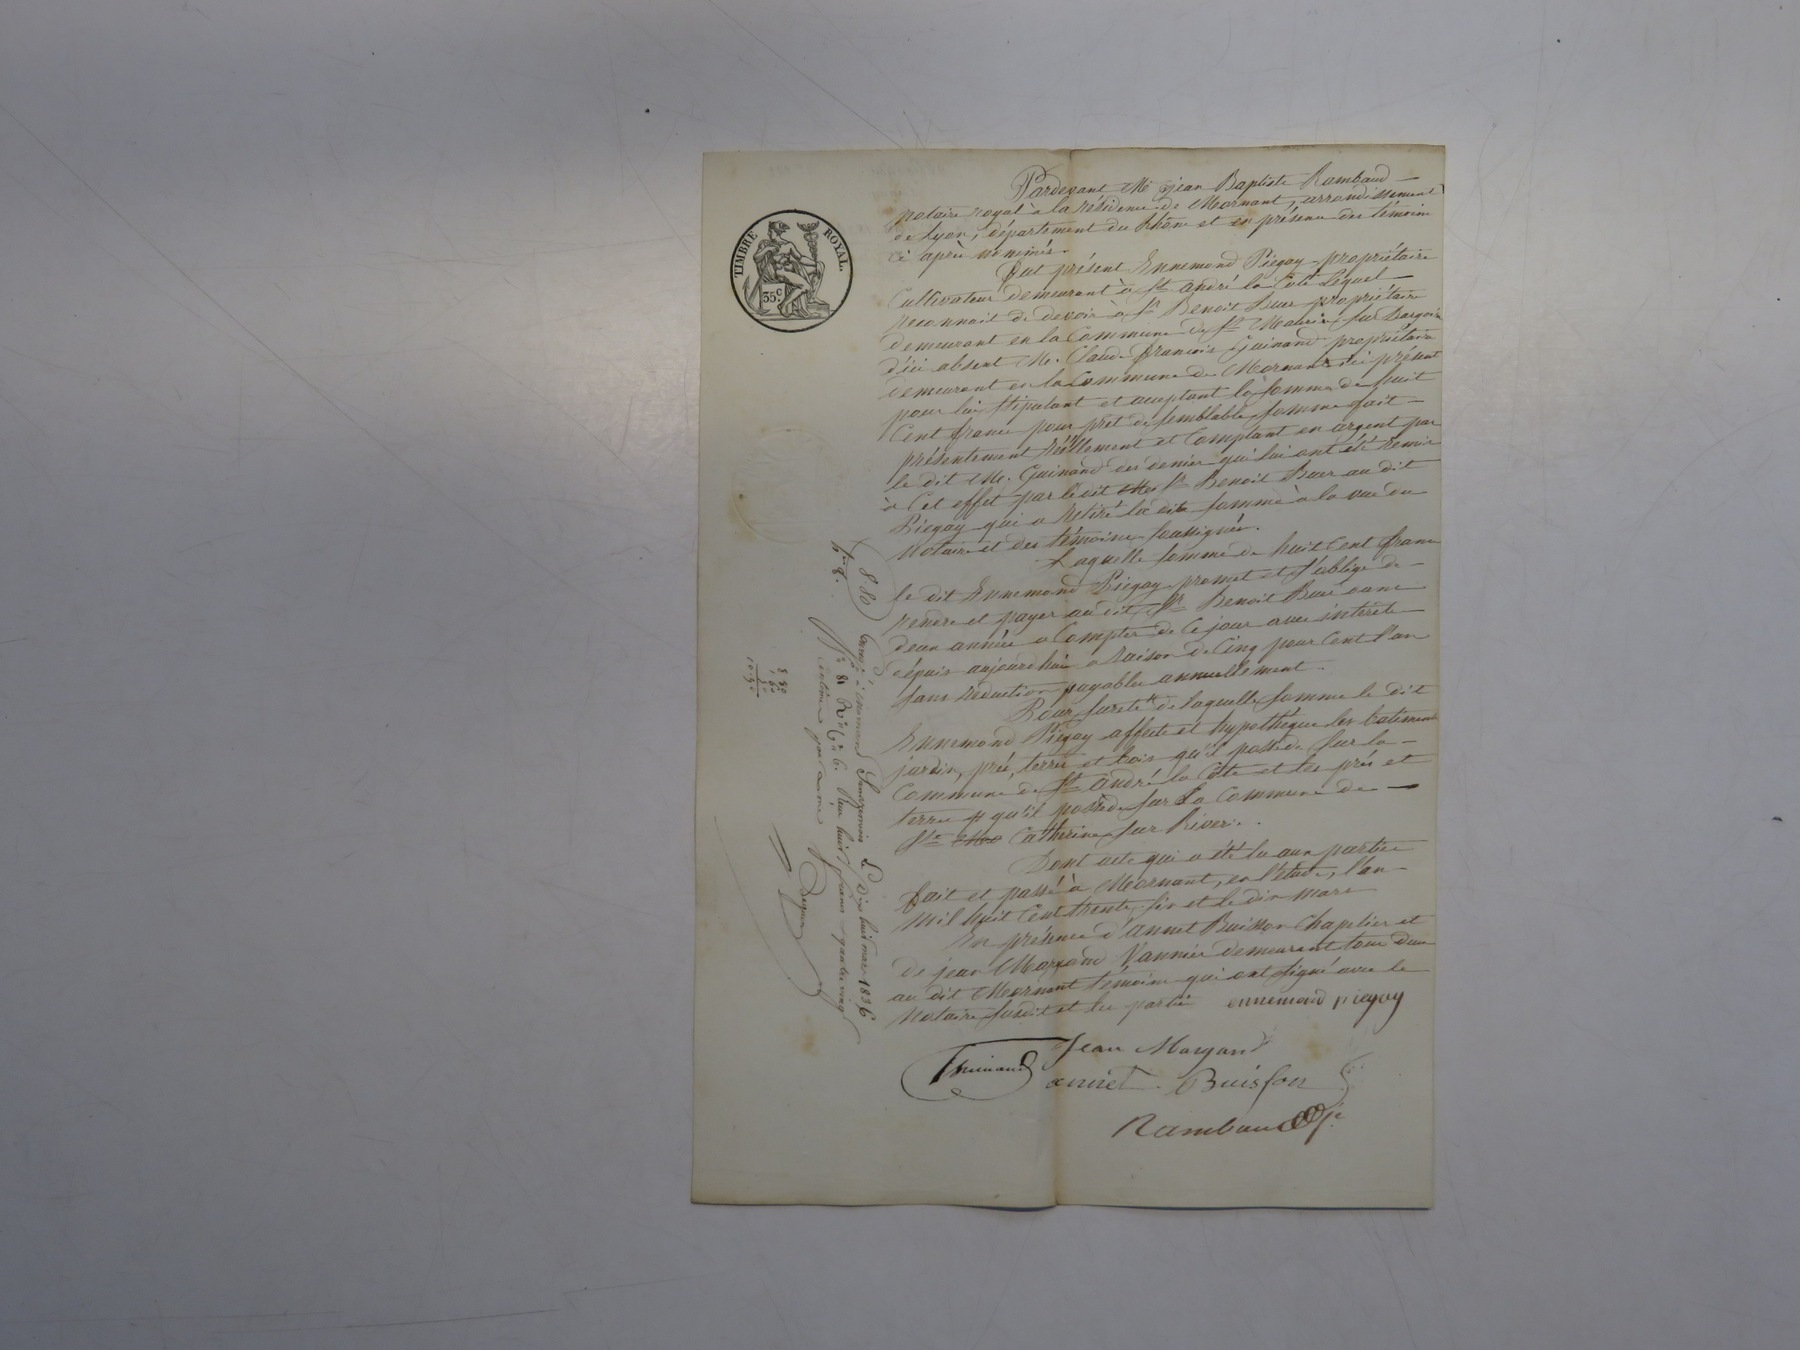 TIMBRE ROYAL.
35 c.
Pardevant Me jean Baptiste Rambaud
notaire royal à la résidence de Mornant, arrondissement
de Lyon, département du Rhône et en présence des témoins
ci après nommés.
Fut présent Ennemond Piegay propriétaire
Cultivateur demeurant à St. andré la Côte Lequel
reconnait de devoir à Sr Benoit propriétaire
demeurant en la Commune de St Maurice sur Dargoire
d'ici absent M. Claude françois Guinand propriétaire
demeurant en la Commune de Mornant ici présent
pour lui stipulant et acceptant la somme de huit
Cent francs pour prêt de semblable somme fait
présentement réellement et Comptant en argent par
le dit M. Guinand des deniers qui lui ont été remis
à Cet effet par le dit Sr Benoit au dit
Piegay qui a retiré la dite somme à la vue du
Notaire et des témoins soussignés.
Laquelle somme de huit Cent francs
le dit Ennemond Piegay promet et s'oblige de
rendre et payer au dit Sr Benoit dans
deux années a Compter de Ce jour avec intérêts
dépuis aujourd'hui a raison de Cinq pour Cent l'an
sans réduction payables annuellement.
Pour sureté de laquelle somme le dit
Ennemond Piegay affecte et hypothèque les batiments
jardin, prés, terres et bois qu'il possède sur la
Commune de St andré la Côte et les prés et
terres qu'il possède sur La Commune de
Ste Catherine sur Rivier.
Dont acte qui a été lu aux parties
fait et passé à Mornant, en l'étude, l'an
mil huit Cent trente six et le dix mars
En présence d'annet Buisson Chapelier et
de jean Margand Vannier demeurant tous deux
au dit Mornant témoins qui ont signé avec le
Notaire susdit et les parties
ennemond piegay
Jean Margand
Guinand
annet Buisson
Rambaud
880
Enregé à mornant Le dix huit mars 1836
Reçu huit francs quatre vingt
Centimes
8 80
10.90